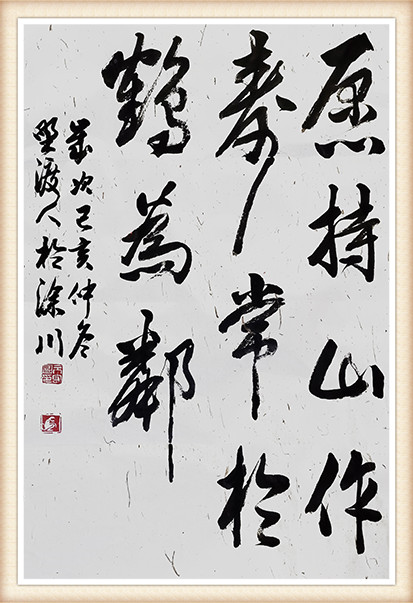 愿持山作
壽常於
鶴為鄰
歲次己亥仲冬
渡人於涂川